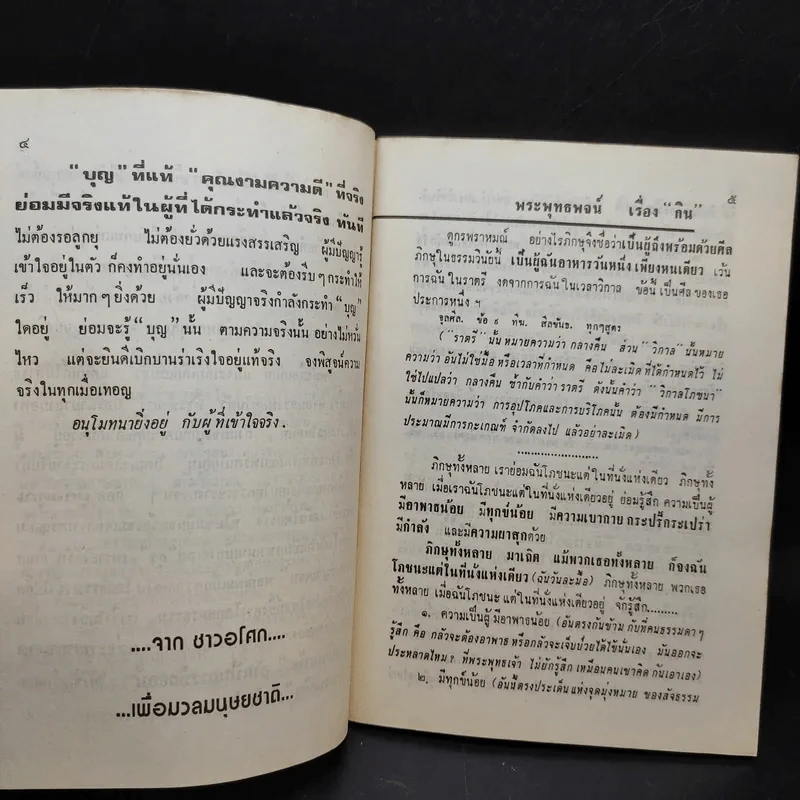 ๔
"บุญ" ที่แท้ "คุณงามความดี" ที่จริง
ย่อมมีจริงแท้ในผู้ที่ได้กระทำแล้วจริง ทันที
ไม่ต้องรอลูกยุ ไม่ต้องยั่วด้วยแรงสรรเสริญ ผู้มีปัญญารู้
เข้าใจอยู่ในตัว ก็คงทำอยู่นั่นเอง และจะต้องรีบๆ กระทำให้
เร็ว ให้มากๆ ยิ่งด้วย ผู้มีปัญญาจริงกำลังกระทำ "บุญ"
ใดอยู่ ย่อมจะรู้ "บุญ" นั้น ตามความจริงนั้น อย่างไม่หวั่น
ไหว แต่จะยินดีเบิกบานร่าเริงใจอยู่แท้จริง จงพิสูจน์ความ
จริงในทุกเมื่อเทอญ
อนุโมทนายิ่งอยู่ กับผู้ที่เข้าใจจริง.
....จาก ชาวอโศก....
...เพื่อมวลมนุษยชาติ...
๕
พระพุทธพจน์ เรื่อง "กิน"
ดูกรพราหมณ์ อย่างไรภิกษุจึงชื่อว่าเป็นผู้ถึงพร้อมด้วยศีล
ภิกษุในธรรมวินัยนี้ เป็นผู้ฉันอาหารวันหนึ่ง เพียงหนเดียว เว้น
การฉันในราตรี งดจากการฉันในเวลาวิกาล ข้อนี้เป็นศีลของเธอ
ประการหนึ่ง ฯ
จุลศีล. ข้อ ๙ ทีฆ. สีลขันธ. ทุกๆสูตร
("ราตรี" นั้น หมายความว่า กลางคืน ส่วน "วิกาล" นั้นหมาย
ความว่า อันไม่ใช่มื้อ หรือเวลาที่กำหนด คือไม่ละเมิด ที่ได้กำหนดไว้ ไม่
ใช่ไปแปลว่า กลางคืน ซ้ำกับคำว่า ราตรี ดังนั้นคำว่า "วิกาลโภชนา"
นั้นก็หมายความว่า การอุปโภคและการบริโภคนั้น ต้องมีกำหนด มีการ
ประมาณมีการกะเกณฑ์ จำกัดลงไป แล้วอย่าละเมิด)
....................
ภิกษุทั้งหลาย เราย่อมฉันโภชนะแต่ในที่นั่งแห่งเดียว ภิกษุทั้ง
หลาย เมื่อเราฉันโภชนะแต่ในที่นั่งแห่งเดียวอยู่ ย่อมรู้สึก ความเป็นผู้
มีอาพาธน้อย มีทุกข์น้อย มีความเบากาย กระปรี้กระเปร่า
มีกำลัง และมีความผาสุกด้วย
ภิกษุทั้งหลาย มาเถิด แม้พวกเธอทั้งหลาย ก็จงฉัน
โภชนะแต่ในที่นั่งแห่งเดียว (ฉันวันละมื้อ) ภิกษุทั้งหลาย พวกเธอ
ทั้งหลาย เมื่อฉันโภชนะ แต่ในที่นั่งแห่งเดียวอยู่ จักรู้สึก.........
๑. ความเป็นผู้มีอาพาธน้อย (อันตรงกันข้าม กับที่คนธรรมดาๆ
รู้สึก คือ กลัวจะต้องอาพาธ หรือกลัวจะเจ็บป่วยได้ไข้นั่นเอง มันออกจะ
ประหลาดไหม? ที่พระพุทธเจ้า ไม่ยักรู้สึก เหมือนคนเขาคิดกันเอาเอง)
๒. มีทุกข์น้อย (อันนี้ตรงประเด็นแห่งจุดมุ่งหมาย ของสัจธรรม